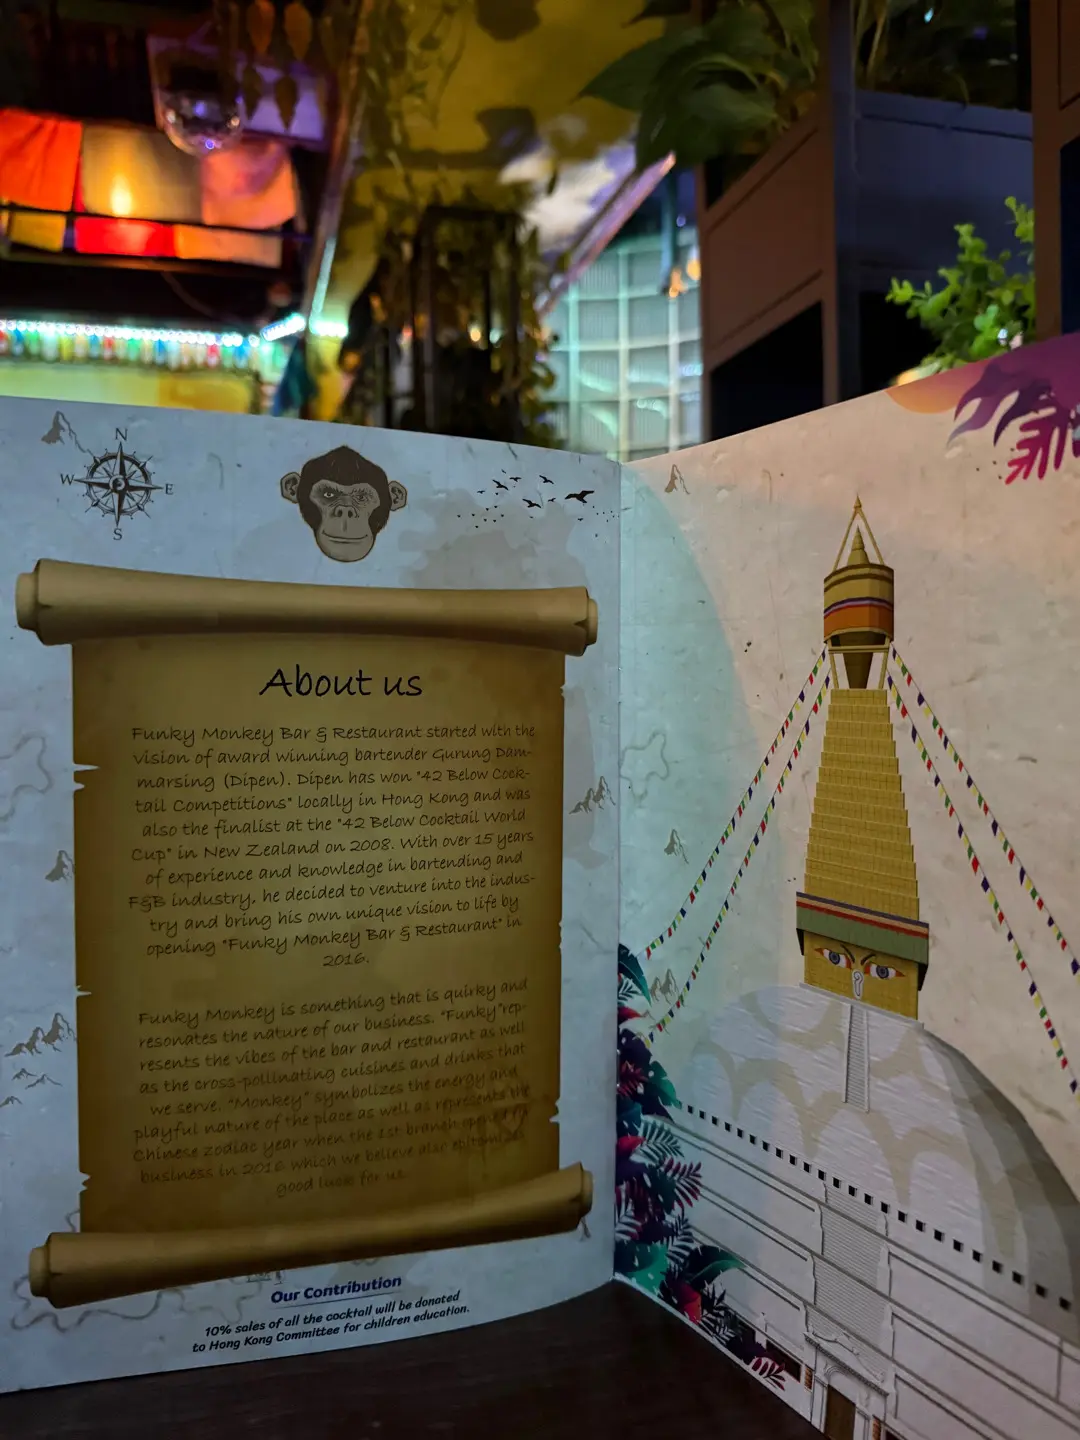 N
W E
S
About us
Funky Monkey Bar & Restaurant started with the
vision of award winning bartender Gurung Dam-
marsing (Dipen). Dipen has won "42 Below Cock-
tail Competitions" locally in Hong Kong and was
also the finalist at the "42 Below Cocktail World
Cup" in New Zealand on 2008. With over 15 years
of experience and knowledge in bartending and
F&B industry, he decided to venture into the indus-
try and bring his own unique vision to life by
opening "Funky Monkey Bar & Restaurant" in
2016.
Funky Monkey is something that is quirky and
resonates the nature of our business. "Funky" rep-
resents the vibes of the bar and restaurant as well
as the cross-pollinating cuisines and drinks that
we serve. "Monkey" symbolizes the energy and
playful nature of the place as well as represents the
Chinese zodiac year when the 1st branch opened
business in 2016 which we believe also epitomizes
good luck for us.
Our Contribution
10% sales of all the cocktail will be donated
to Hong Kong Committee for children education.